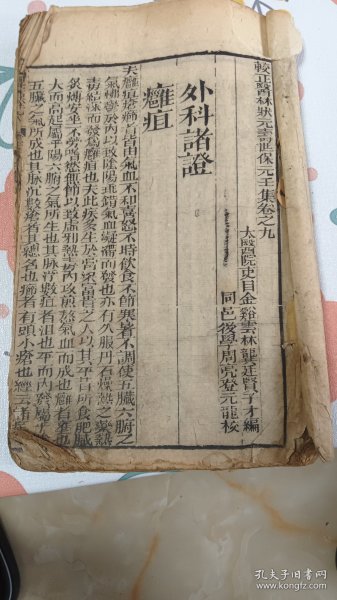 較正醫林狀元壽世保元壬集卷之九
太醫院吏目金谿雲林龔廷賢子才編
同邑後學周亮登元龍校
外科諸證
癰疽
夫癰疽瘡癤皆由氣血不和喜怒不時飲食不節寒暑不調使五臟六腑之
氣怫鬱於內以致陰陽乖錯氣血凝滯而發也亦有久服丹石燥熱之藥熱
毒結深而發為癰疽也夫此疾多生於膏粱富貴之人以其平昔所食肥膩
炙煿安坐不勞嗜慾無節以致虛邪熱毒內攻煎熬氣血而成也癰者壅也
大而高起屬乎陽六腑之氣所生也其脉浮數疽者沮也平而內發屬乎陰
五臟之氣所成也其脉沉數瘡者其總名也癤者有頭小瘡也經云諸
孔夫子旧书网
www.kongfz.com